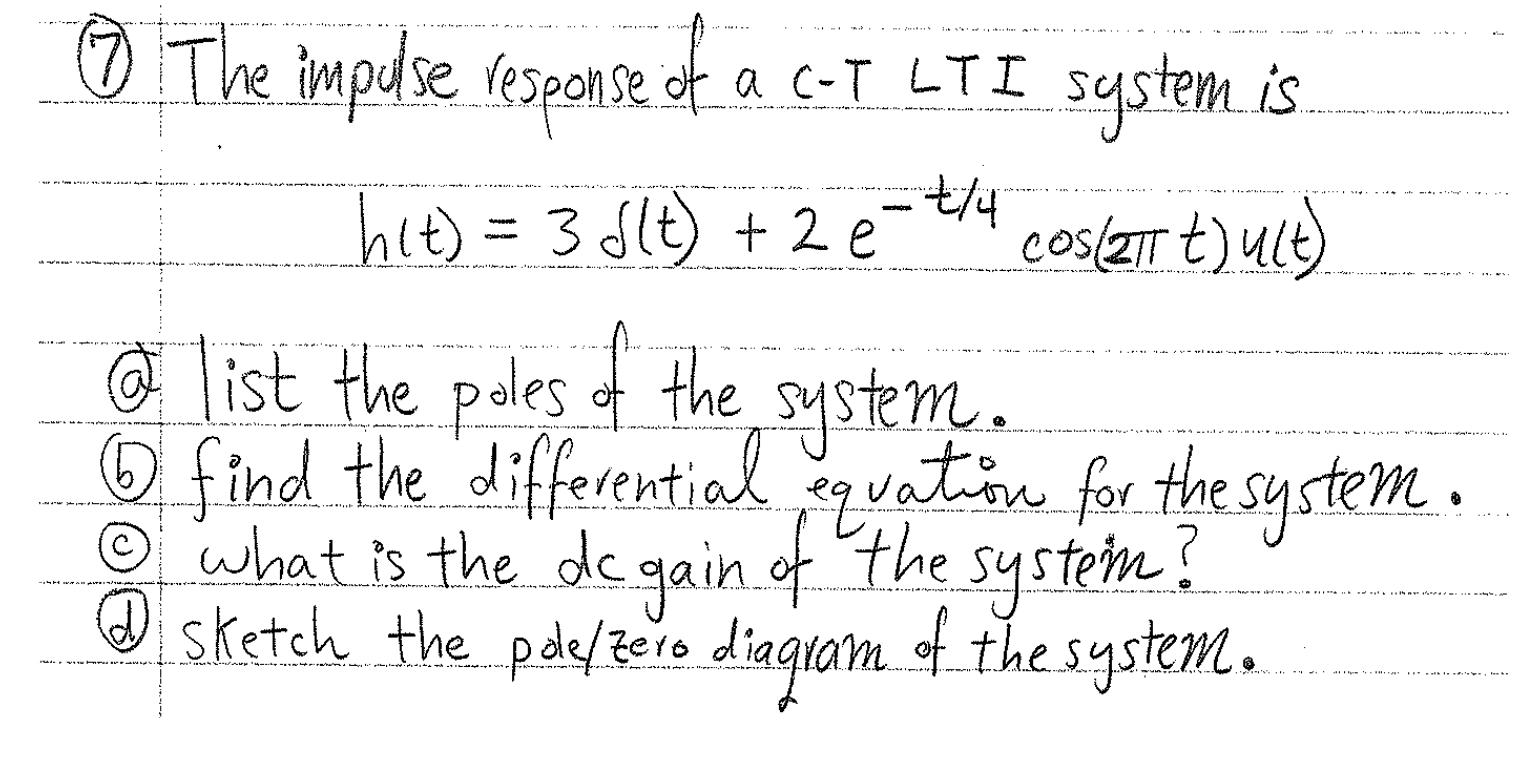 ⑦ The impulse response of a C-T LTI system is
h(t) = 3 δ(t) + 2 e^{-t/4} cos(2π t) u(t)
ⓐ list the poles of the system.
ⓑ find the differential equation for the system.
ⓒ what is the dc gain of the system?
ⓓ sketch the pole/zero diagram of the system.